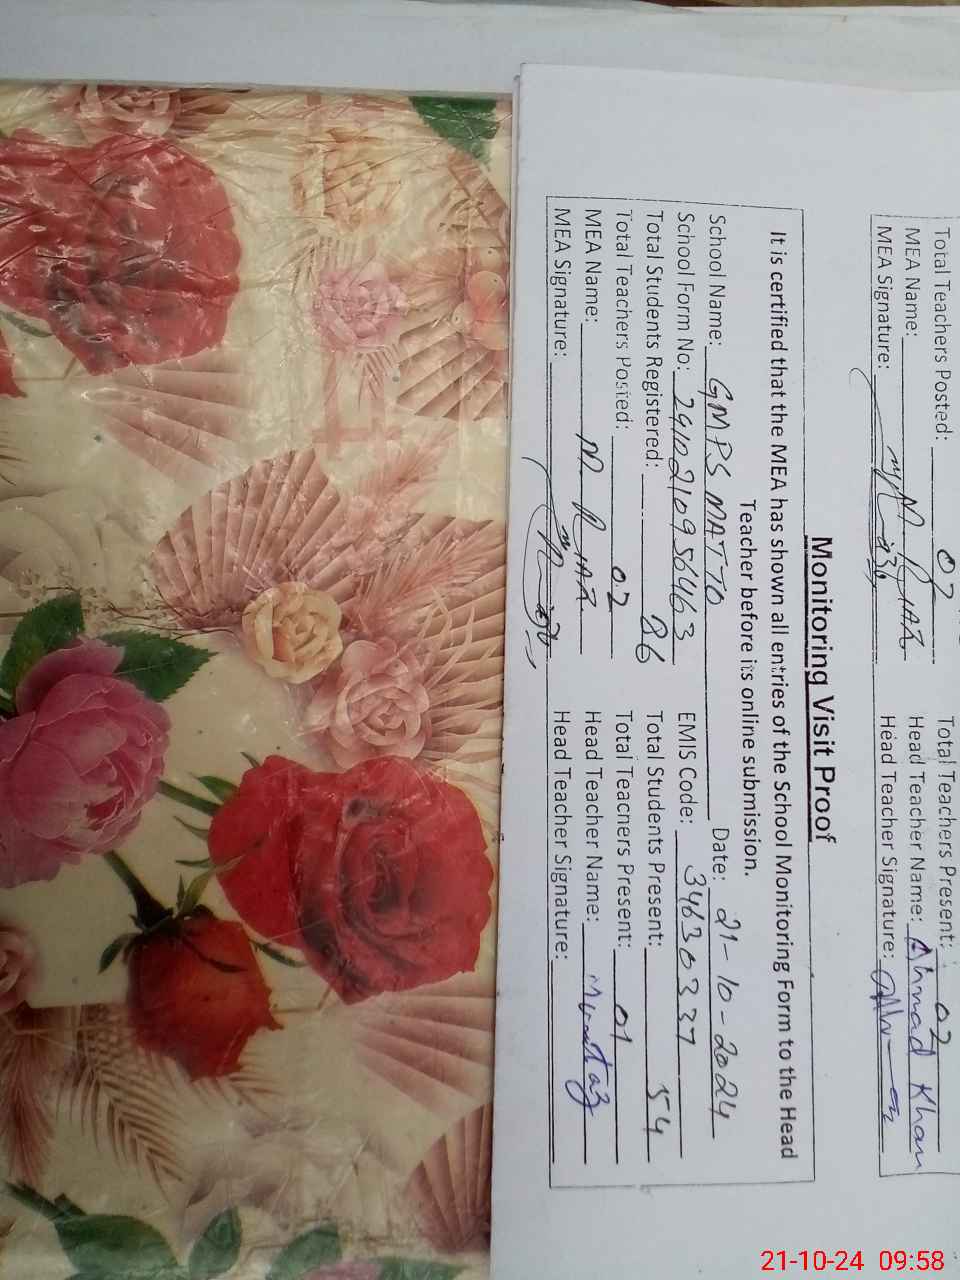 Total Teachers Posted: 02 Total Teachers Present: 02
MEA Name: M RIAZ Head Teacher Name: Ahmad Khan
MEA Signature: Head Teacher Signature:
Monitoring Visit Proof
It is certified that the MEA has shown all entries of the School Monitoring Form to the Head
Teacher before its online submission.
School Name: GMPS MATTO Date: 21-10-2024
School Form No: 241021095646 3 EMIS Code: 34630337
Total Students Registered: 86 Total Students Present: 54
Total Teachers Posted: 02 Total Teachers Present: 01
MEA Name: M RIAZ Head Teacher Name: Mumtaz
MEA Signature: Head Teacher Signature:
21-10-24 09:58